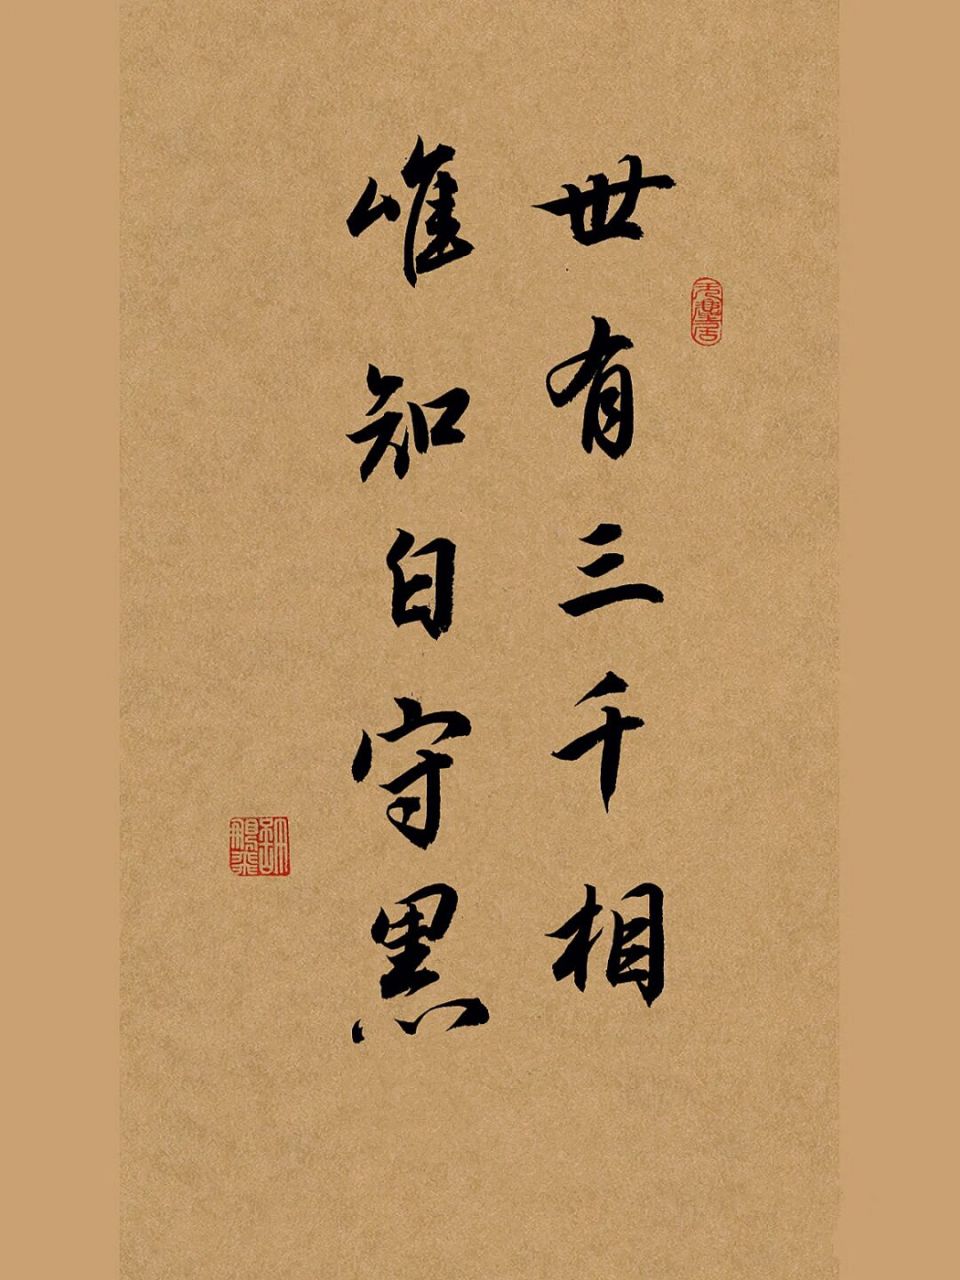 世有三千相
唯知白守黑